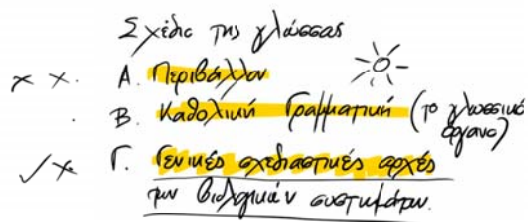 Σχέδιο της γλώσσας
x x. Α. Περιβάλλον
. Β. Καθολική Γραμματική (το γλωσσικό όργανο)
✓x Γ. Γενικές σχεδιαστικές αρχές
των βιολογικών συστημάτων.